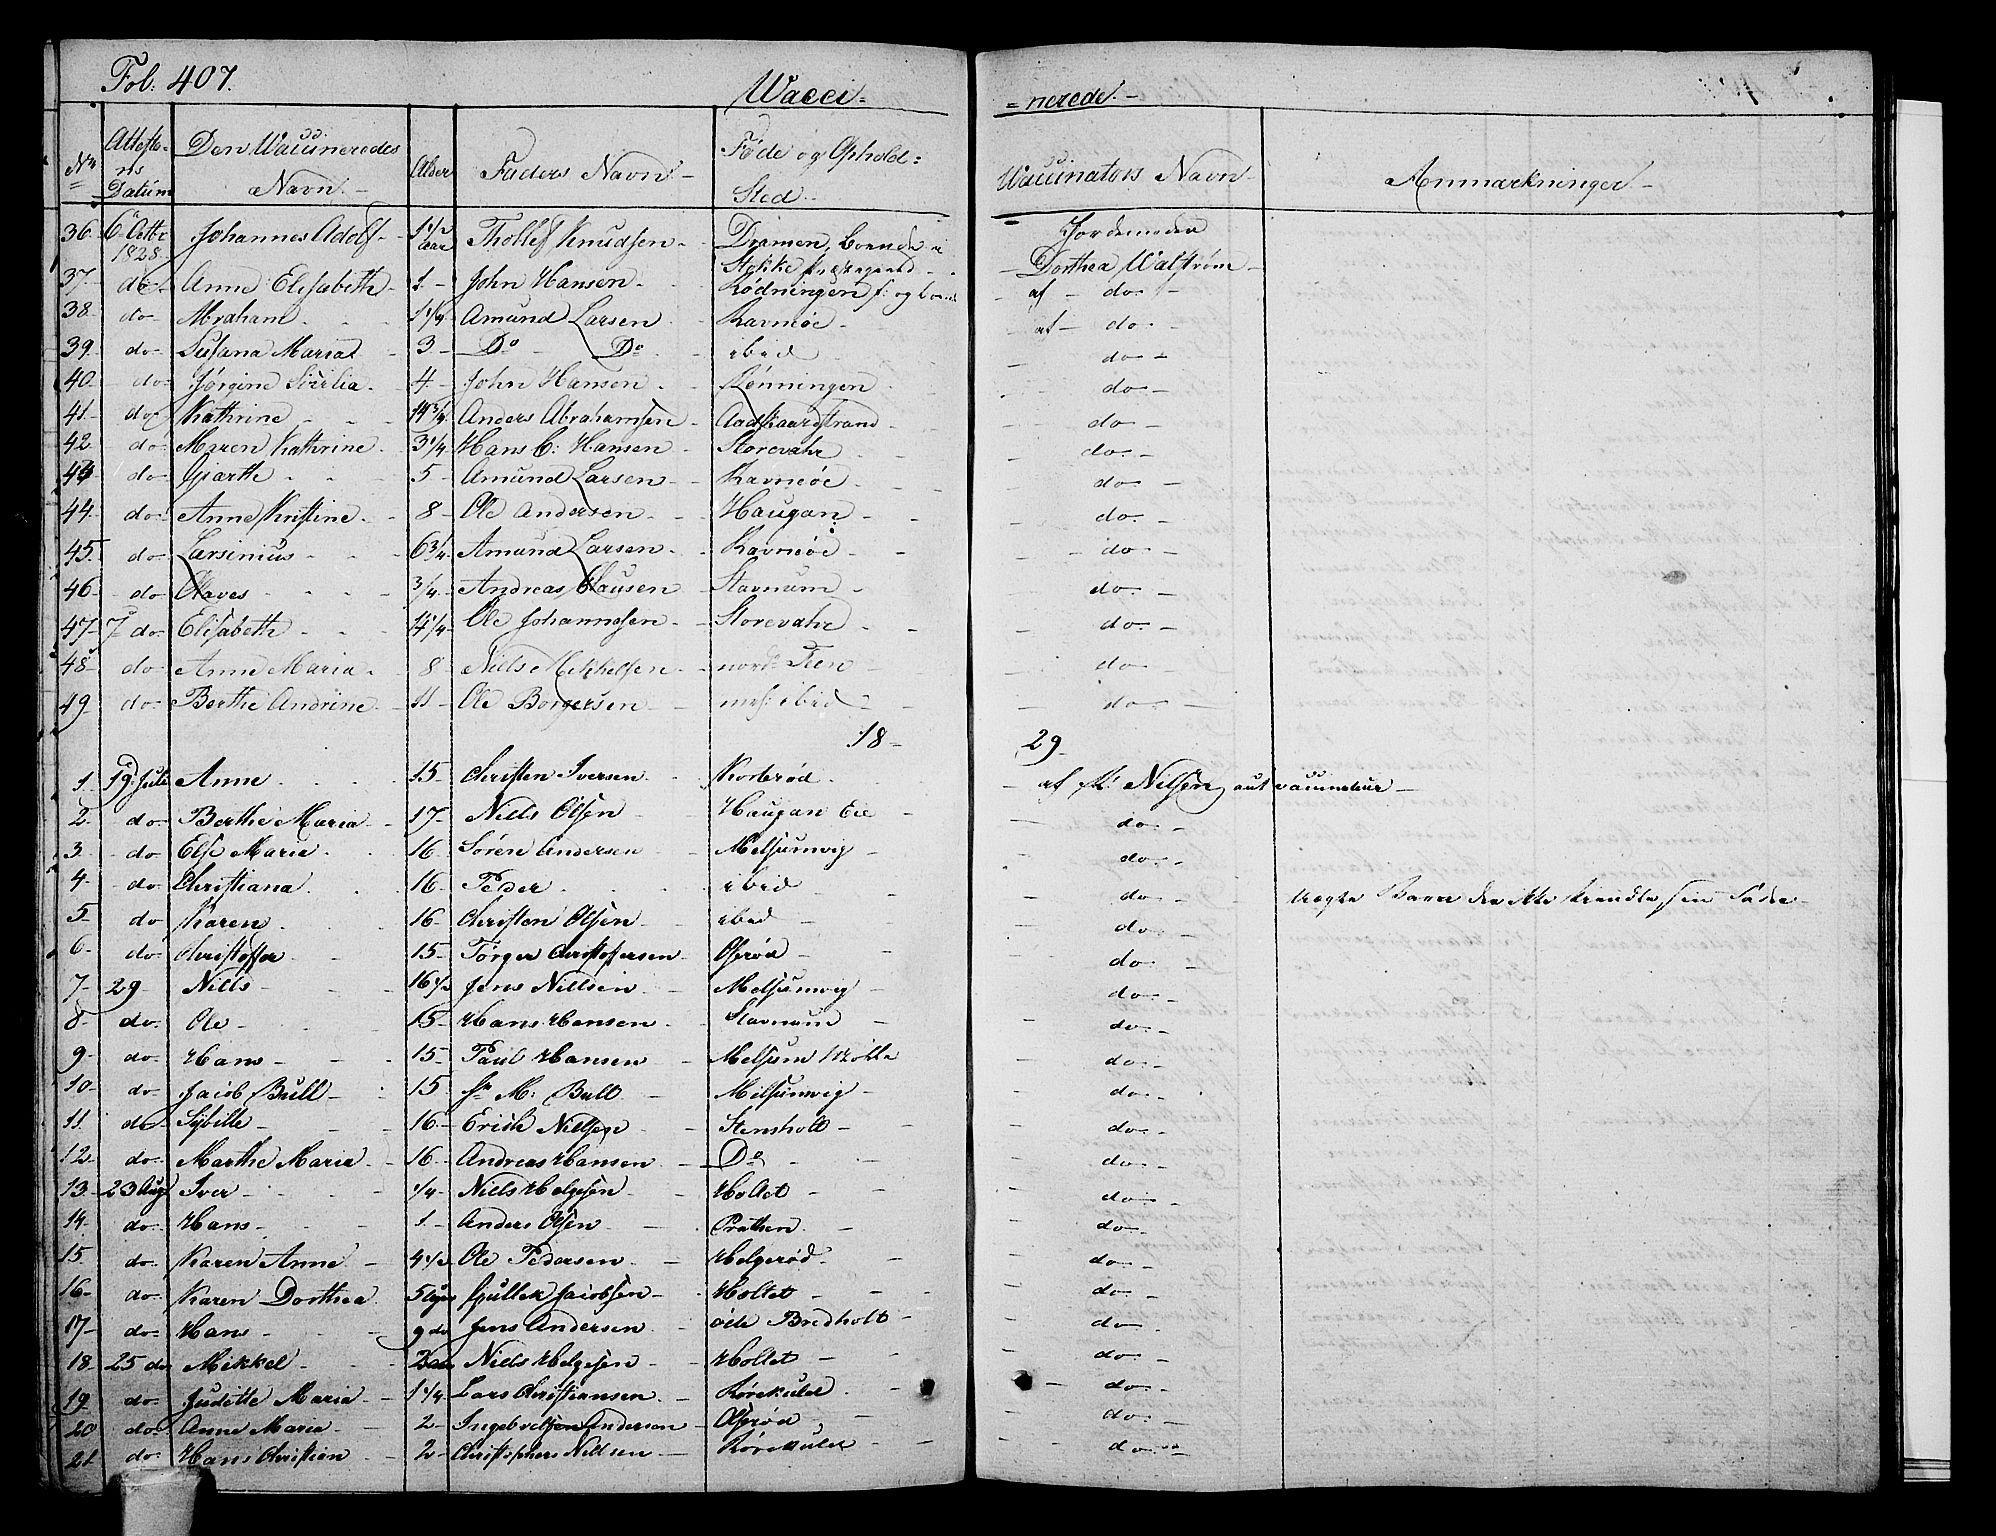 Fol. 407. Wacci= =nerede.
Nr Attesto-ns Datum Den Vaccineredes Navn. Alder Faders Navn. Føde og Ophold: Sted. Vaccinators Navn Anmærkninger
36. 6 Octbr 1828 Johannes Adolf 1 1/2 aar Thollef Knudsen Dramen, boende i Stokke Jordemoder Dorthea Walstrøm
37 do Anne Elisabeth 1 John Hansen Rødningen f: og af do.
38 do Abraham 1 1/4 Amund Larsen Ravnøe af do.
39. do Susana Maria 3 Do Do ibid do
40. do Jørgine Sicilia 4 John Hansen Rønningen do
41. do Kathrine 14 3/4 Anders Abrahamsen Aadskaardstrand do
42 do Maren Kathrine 3 1/4 Hans C: Hansen Storevahr do.
44 do Gjærthe 5 Amund Larsen Ravnøe do
44. do Anne Kristine 8 Ole Andersen Haugan do.
45. do Larsinius 6 3/4 Amund Larsen Ravnøe do
46 do Olaves 3/4 Andreas Clausen Stavnum do.
47 7 do Elisabeth 14 1/4 Ole Johannesen Storevahr do.
48 do Anne Maria 8 Niels Mikkelsen nord: Feen do
49 do Berthe Andrine 11 Ole Borgersen ibid do.
18 29
1 19 Juli Anne 15 Christen Iversen Korterød af M: Nilsen aut vaccinateur
2 do Berthe Maria 17 Niels Olsen Haugan Eie do.
3 do Else Maria 16 Søren Andersen Melsumvig do.
4 do Christiana 16 Peder ibid do uægte Barn der ikke kiendte sin Fader
5. do Karen 16 Christen Olsen ibid do
6 do Christoffer 15 Tørger Christoffersen Oserød do.
7 29 Niels 16 1/2 Jens Nillsen Melsumvig do
8 do. Ole 15 Hans Hansen Stavnum do
9 do Hans 15 Paul Hansen Melsum Mølle do
10 do Jacob Bull 15 Sr M: Bull Melsumvig do.
11. do Sybille 16 Erich Nielsen Stensholt do
12 do Marthe Maria 16 Andreas Hansen Do do.
13. 23 Aug Iver 1/4 Niels Helgesen Holtet do
14 do Hans 1 Anders Olsen Prathen do
15 do. Karen Anne 4 1/2 Ole Pedersen Helgerød do
16 do Karen Dorthea 5 uger Gullek Jacobsen Holtet do
17 do Hans 9 do Jens Andersen øde Bredholt do.
18 25 do Mikkel 2 aar Niels Helgesen Holtet do
19 do. Juditte Maria 1 1/4 Lars Christiansen Rørekulle do.
20 do Anne Maria 2 Ingebretsen Andersen Oserød do
21. do Hans Christien 2 Christopher Nillsen Rørekulle do